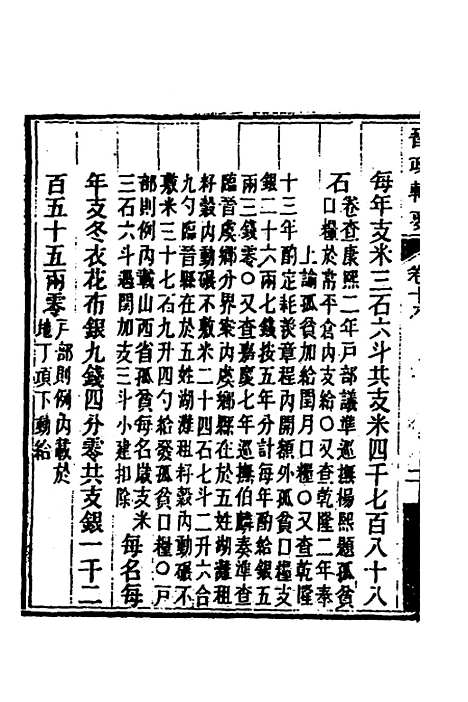 晉政輯要 卷十六 二
每年支米三石六斗共支米四千七百八十八
石卷查康熙二年戶部議準巡撫楊熙題孤貧
口糧於常平倉內支給〇又查乾隆二年奉
上諭孤貧加給閏月口糧〇又查乾隆
十三年酌定耗羨章程內開額外孤貧口糧支
銀二十六兩七錢按五年分計每年酌給銀五
兩三錢零〇又查嘉慶七年巡撫伯麟奏準查
臨晉虞鄉分界案內虞鄉縣在於五姓湖灘租
籽穀內動碾不敷米二十四石七斗二升六合
九勺臨晉縣在於五姓湖灘租籽穀內動碾不
敷米三十七石九升四勺給發孤貧口糧〇戶
部則例內載山西省孤貧每名歲支米
三石六斗遇閏加支三斗小建扣除每名每
年支冬衣花布銀九錢四分零共支銀一千二
百五十五兩零戶部則例內載於
地丁項下動給